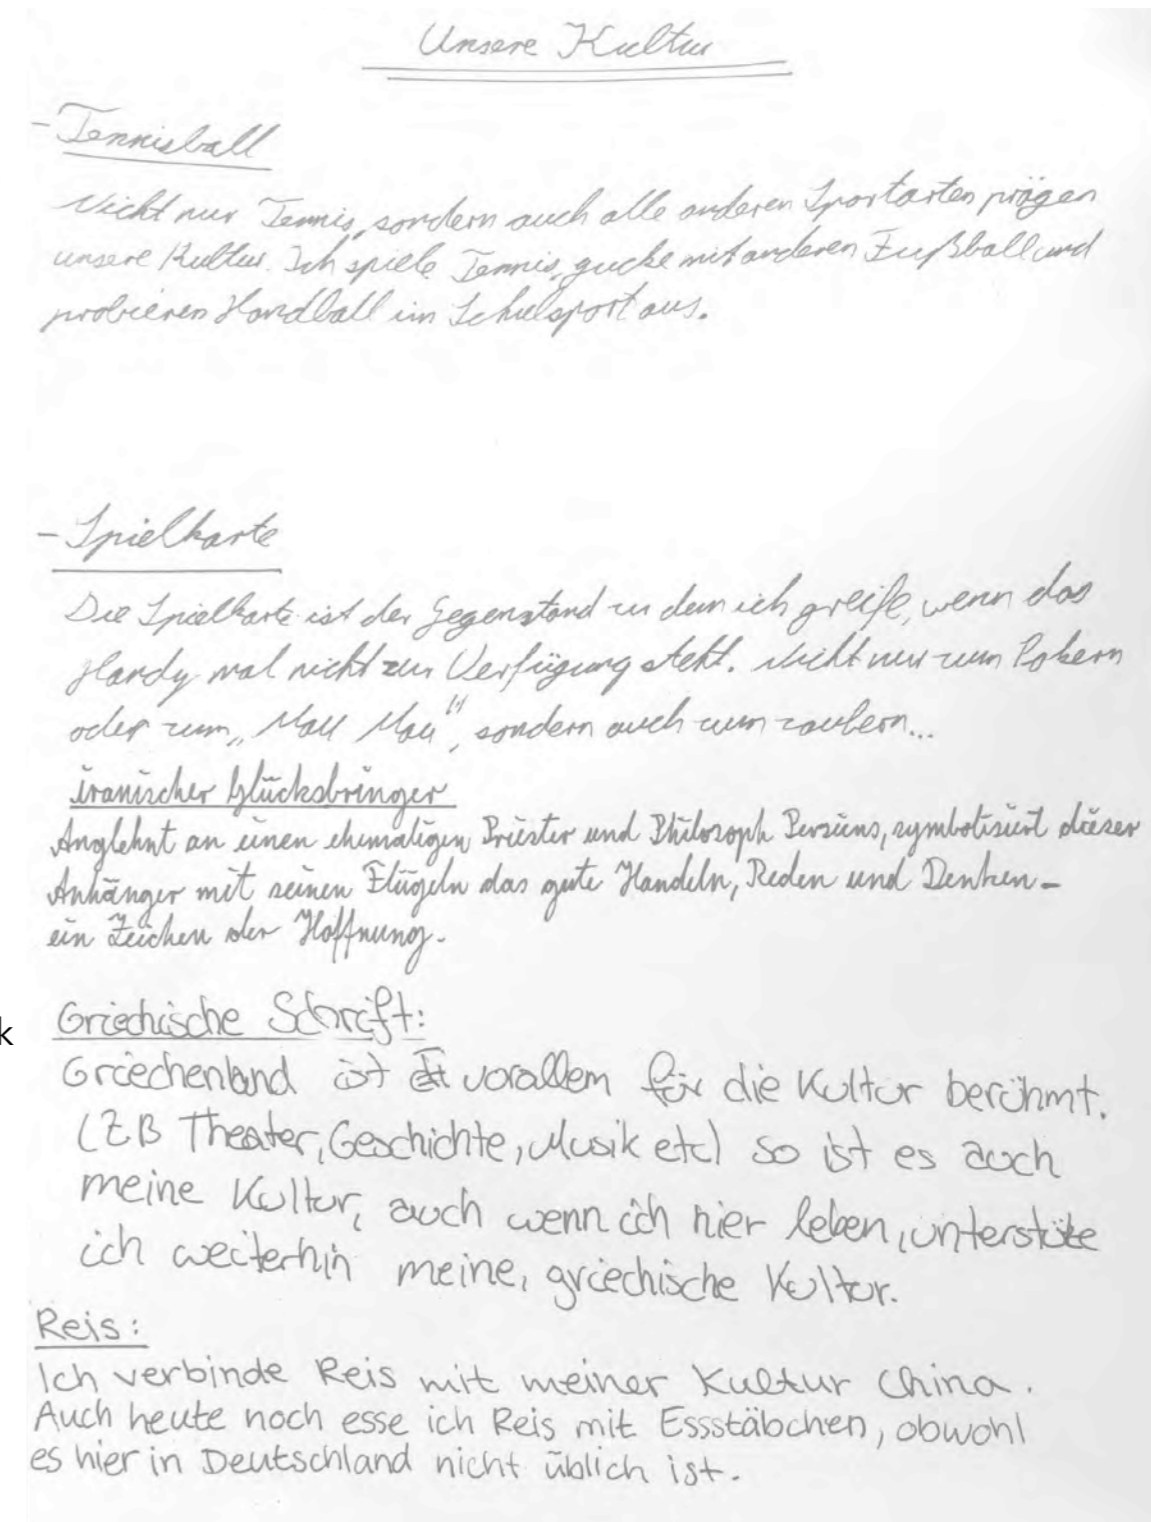 Unsere Kultur
- Tennisball
Nicht nur Tennis, sondern auch alle anderen Sportarten prägen
unsere Kultur. Ich spiele Tennis, gucke mit anderen Fußball und
probieren Handball im Schulsport aus.
- Spielkarte
Die Spielkarte ist der Gegenstand zu dem ich greife, wenn das
Handy mal nicht zur Verfügung steht. Nicht nur zum Pokern
oder zum „Mau Mau", sondern auch zum zaubern...
iranischer Glücksbringer
Anglehnt an einen ehemaligen Priester und Philosoph Persiens, symbolisiert dieser
Anhänger mit seinen Flügeln das gute Handeln, Reden und Denken -
ein Zeichen der Hoffnung.
k
Griechische Schrift:
Griechenland ist vorallem für die Kultur berühmt.
(ZB Theater, Geschichte, Musik etc) so ist es auch
meine Kultur, auch wenn ich hier leben, unterstüze
ich weiterhin meine, griechische Kultur.
Reis:
Ich verbinde Reis mit meiner Kultur China.
Auch heute noch esse ich Reis mit Essstäbchen, obwohl
es hier in Deutschland nicht üblich ist.